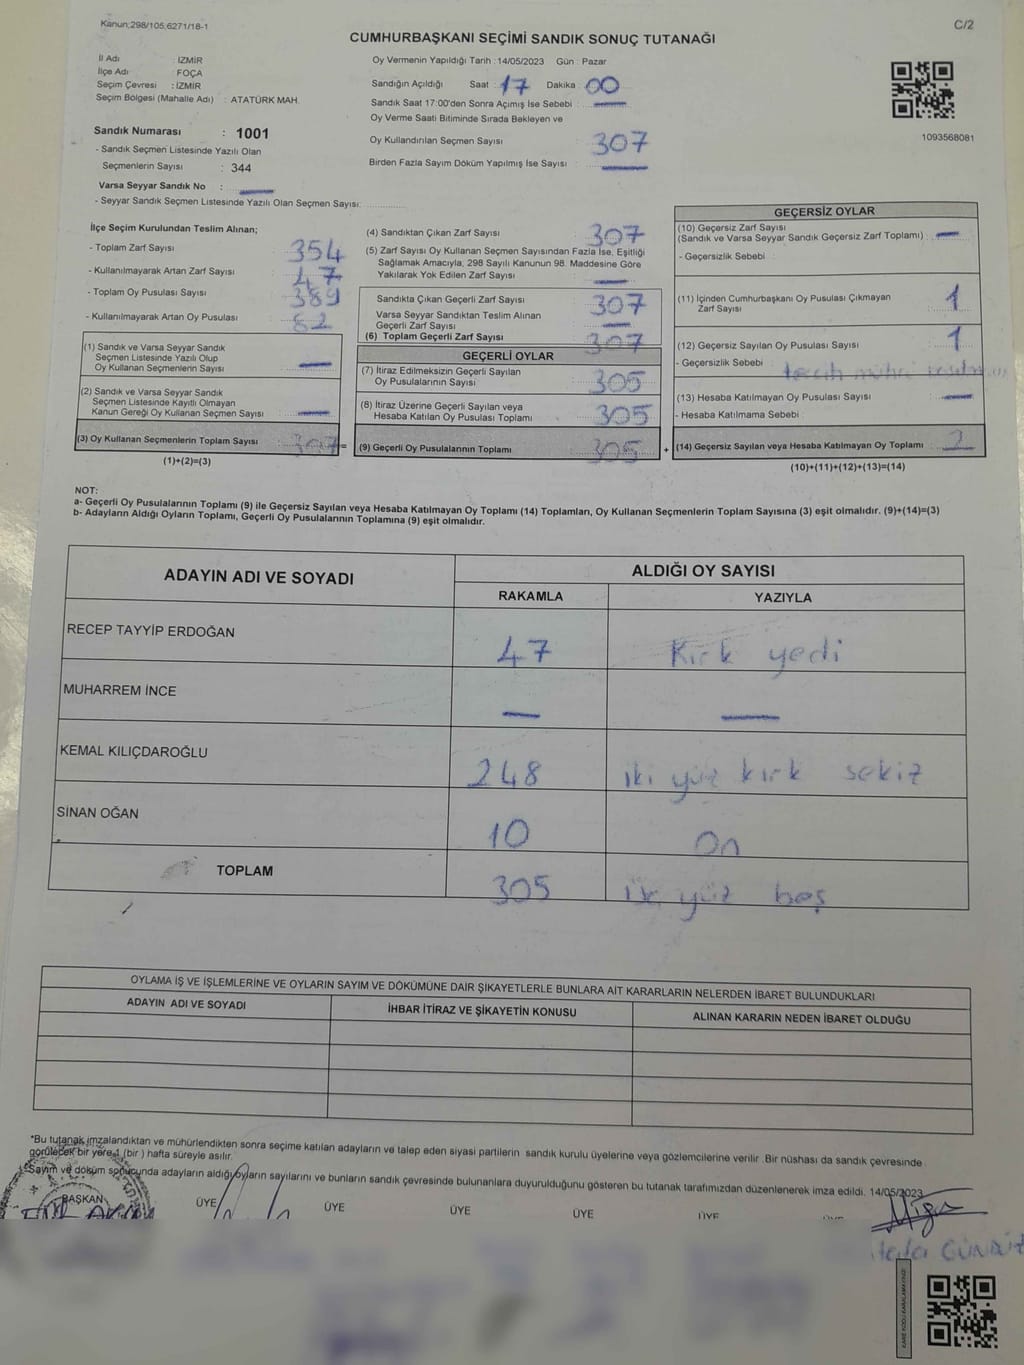 Kanun;298/105;6271/18-1
C/2
CUMHURBAŞKANI SEÇİMİ SANDIK SONUÇ TUTANAĞI
İl Adı : İZMİR
İlçe Adı : FOÇA
Seçim Çevresi : İZMİR
Seçim Bölgesi (Mahalle Adı) : ATATÜRK MAH.
Oy Vermenin Yapıldığı Tarih : 14/05/2023 Gün : Pazar
Sandığın Açıldığı Saat : 17 Dakika : 00
Sandık Saat 17:00'den Sonra Açımış İse Sebebi : —
Oy Verme Saati Bitiminde Sırada Bekleyen ve
Oy Kullandırılan Seçmen Sayısı : 307
Birden Fazla Sayım Döküm Yapılmış İse Sayısı : —
1093568081
Sandık Numarası : 1001
- Sandık Seçmen Listesinde Yazılı Olan
Seçmenlerin Sayısı : 344
Varsa Seyyar Sandık No : —
- Seyyar Sandık Seçmen Listesinde Yazılı Olan Seçmen Sayısı:
İlçe Seçim Kurulundan Teslim Alınan;
- Toplam Zarf Sayısı : 354
- Kullanılmayarak Artan Zarf Sayısı : 47
- Toplam Oy Pusulası Sayısı : 389
- Kullanılmayarak Artan Oy Pusulası : 82
(1) Sandık ve Varsa Seyyar Sandık
Seçmen Listesinde Yazılı Olup
Oy Kullanan Seçmenlerin Sayısı : —
(2) Sandık ve Varsa Seyyar Sandık
Seçmen Listesinde Kayıtlı Olmayan
Kanun Gereği Oy Kullanan Seçmen Sayısı : —
(3) Oy Kullanan Seçmenlerin Toplam Sayısı : 307 =
(1)+(2)=(3)
(4) Sandıktan Çıkan Zarf Sayısı : 307
(5) Zarf Sayısı Oy Kullanan Seçmen Sayısından Fazla İse, Eşitliği
Sağlamak Amacıyla, 298 Sayılı Kanunun 98. Maddesine Göre
Yakılarak Yok Edilen Zarf Sayısı : —
Sandıkta Çıkan Geçerli Zarf Sayısı : 307
Varsa Seyyar Sandıktan Teslim Alınan
Geçerli Zarf Sayısı : —
(6) Toplam Geçerli Zarf Sayısı : 307
GEÇERLİ OYLAR
(7) İtiraz Edilmeksizin Geçerli Sayılan
Oy Pusulalarının Sayısı : 305
(8) İtiraz Üzerine Geçerli Sayılan veya
Hesaba Katılan Oy Pusulası Toplamı : 305
(9) Geçerli Oy Pusulalarının Toplamı : 305 +
GEÇERSİZ OYLAR
(10) Geçersiz Zarf Sayısı
(Sandık ve Varsa Seyyar Sandık Geçersiz Zarf Toplamı) : —
- Geçersizlik Sebebi :
(11) İçinden Cumhurbaşkanı Oy Pusulası Çıkmayan
Zarf Sayısı : 1
(12) Geçersiz Sayılan Oy Pusulası Sayısı : 1
- Geçersizlik Sebebi : tercih mührü
(13) Hesaba Katılmayan Oy Pusulası Sayısı : —
- Hesaba Katılmama Sebebi :
(14) Geçersiz Sayılan veya Hesaba Katılmayan Oy Toplamı : 2
(10)+(11)+(12)+(13)=(14)
NOT:
a- Geçerli Oy Pusulalarının Toplamı (9) ile Geçersiz Sayılan veya Hesaba Katılmayan Oy Toplamı (14) Toplamları, Oy Kullanan Seçmenlerin Toplam Sayısına (3) eşit olmalıdır. (9)+(14)=(3)
b- Adayların Aldığı Oyların Toplamı, Geçerli Oy Pusulalarının Toplamına (9) eşit olmalıdır.
ADAYIN ADI VE SOYADI ALDIĞI OY SAYISI
RAKAMLA YAZIYLA
RECEP TAYYİP ERDOĞAN 47 Kırk yedi
MUHARREM İNCE — —
KEMAL KILIÇDAROĞLU 248 iki yüz kırk sekiz
SİNAN OĞAN 10 On
TOPLAM 305 yüz beş
OYLAMA İŞ VE İŞLEMLERİNE VE OYLARIN SAYIM VE DÖKÜMÜNE DAİR ŞİKAYETLERLE BUNLARA AİT KARARLARIN NELERDEN İBARET BULUNDUKLARI
ADAYIN ADI VE SOYADI İHBAR İTİRAZ VE ŞİKAYETİN KONUSU ALINAN KARARIN NEDEN İBARET OLDUĞU
*Bu tutanak imzalandıktan ve mühürlendikten sonra seçime katılan adayların ve talep eden siyasi partilerin sandık kurulu üyelerine veya gözlemcilerine verilir .Bir nüshası da sandık çevresinde
görülecek bir yere 1 (bir ) hafta süreyle asılır.
Sayım ve döküm sonucunda adayların aldığı oyların sayılarını ve bunların sandık çevresinde bulunanlara duyurulduğunu gösteren bu tutanak tarafımızdan düzenlenerek imza edildi. 14/05/2023
BAŞKAN ÜYE ÜYE ÜYE ÜYE ÜYE